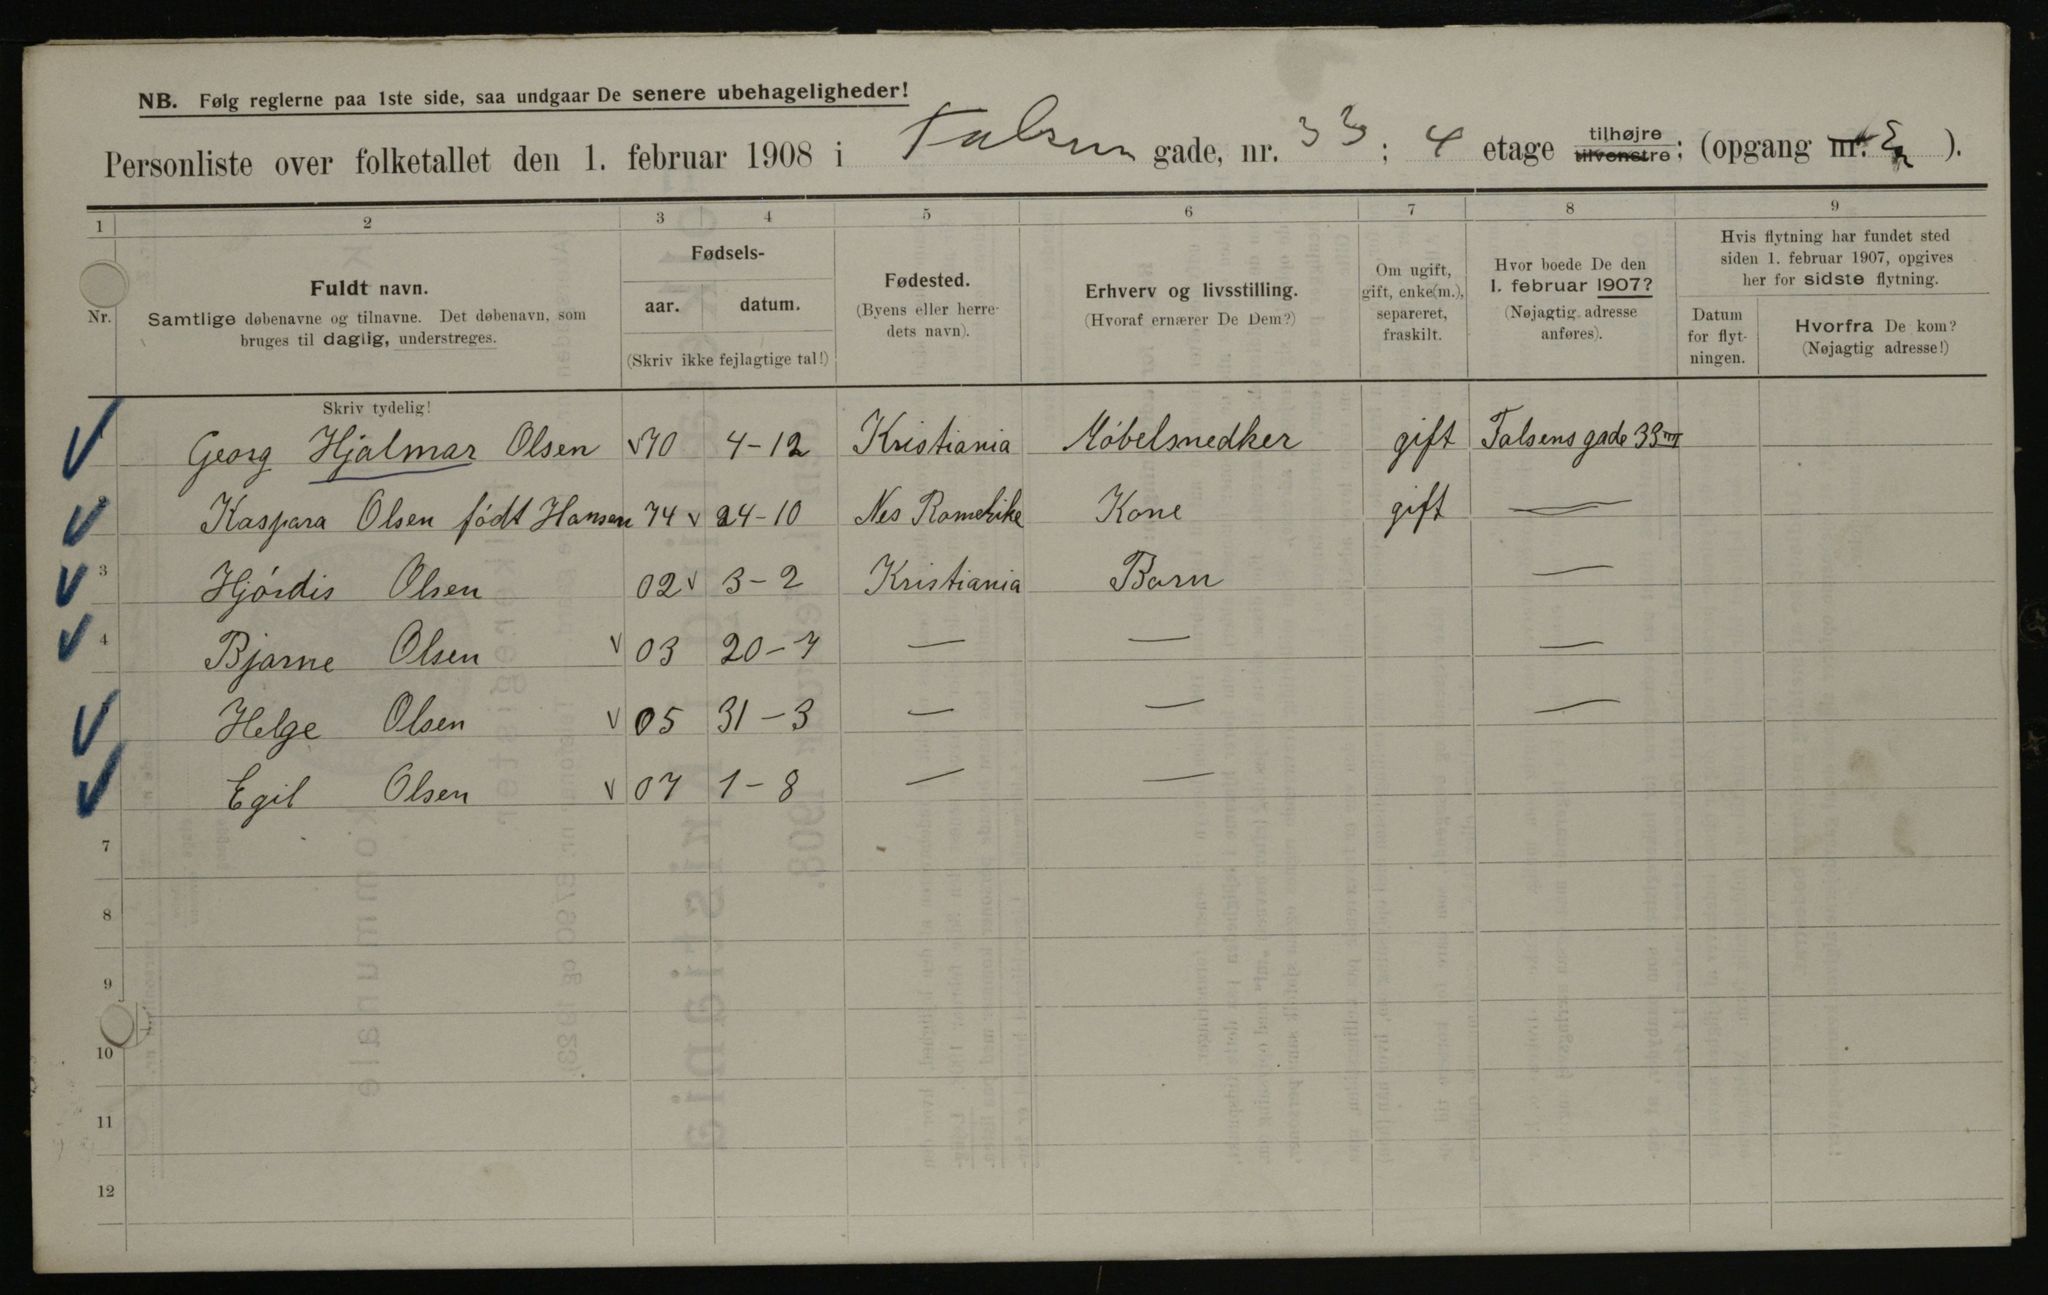 NB. Følg reglerne paa 1ste side, saa undgaar De senere ubehageligheder!
Personliste over folketallet den 1. februar 1908 i Falsens gade, nr. 33; 4 etage tilhøjre tilvenstre; (opgang nr. ).
1 2 3 4 5 6 7 8 9
Nr.
Fuldt navn.
Samtlige døbenavne og tilnavne. Det døbenavn, som
bruges til daglig, understreges.
Fødsels-
aar. datum.
(Skriv ikke fejlagtige tal!)
Fødested.
(Byens eller herre-
dets navn).
Erhverv og livsstilling.
(Hvoraf ernærer De Dem?)
Om ugift,
gift, enke(m.),
separeret,
fraskilt.
Hvor boede De den
1. februar 1907?
(Nøjagtig adresse
anføres).
Hvis flytning har fundet sted
siden 1. februar 1907, opgives
her for sidste flytning.
Datum
for flyt-
ningen.
Hvorfra De kom?
(Nøjagtig adresse!)
Skriv tydelig!
Georg Hjalmar Olsen 70 4-12 Kristiania Møbelsnedker gift Falsens gade 33 IIII
Kaspara Olsen født Hansen 74 24-10 Nes Romerike Kone gift —
3 Hjørdis Olsen 02 3-2 Kristiania Barn —
4 Bjarne Olsen 03 20-7 — — —
Helge Olsen 05 31-3 — — —
Egil Olsen 07 1-8 — —
7
8
9
10
11
12